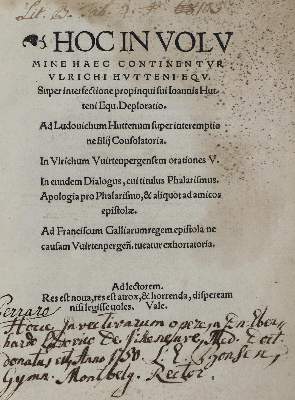 HOC IN VOLV
MINE HAEC CONTINENTVR
VLRICHI HVTTENI EQV.
Super interfectione propinqui sui Ioannis Hut
teni Equ. Deploratio.
Ad Ludouichum Huttenum super interemptio
ne filij Consolatoria.
In Vlrichum Vuirtenpergensem orationes V.
In eundem Dialogus, cui titulus Phalarismus.
Apologia pro Phalarismo, & aliquot ad amicos
epistolæ.
Ad Franciscum Galliarum regem epistola ne
causam Vuirtenpergeñ. tueatur exhortatoria.
Ad lectorem.
Res est noua, res est atrox, & horrenda, dispeream
ni si legisse uoles. Vale.
Ferrare
Hocce Invectivarum opere, in Eber
hardo Med. Doct.
donatus est, Anno L. E.
Gymn. Montbelg. Rector.